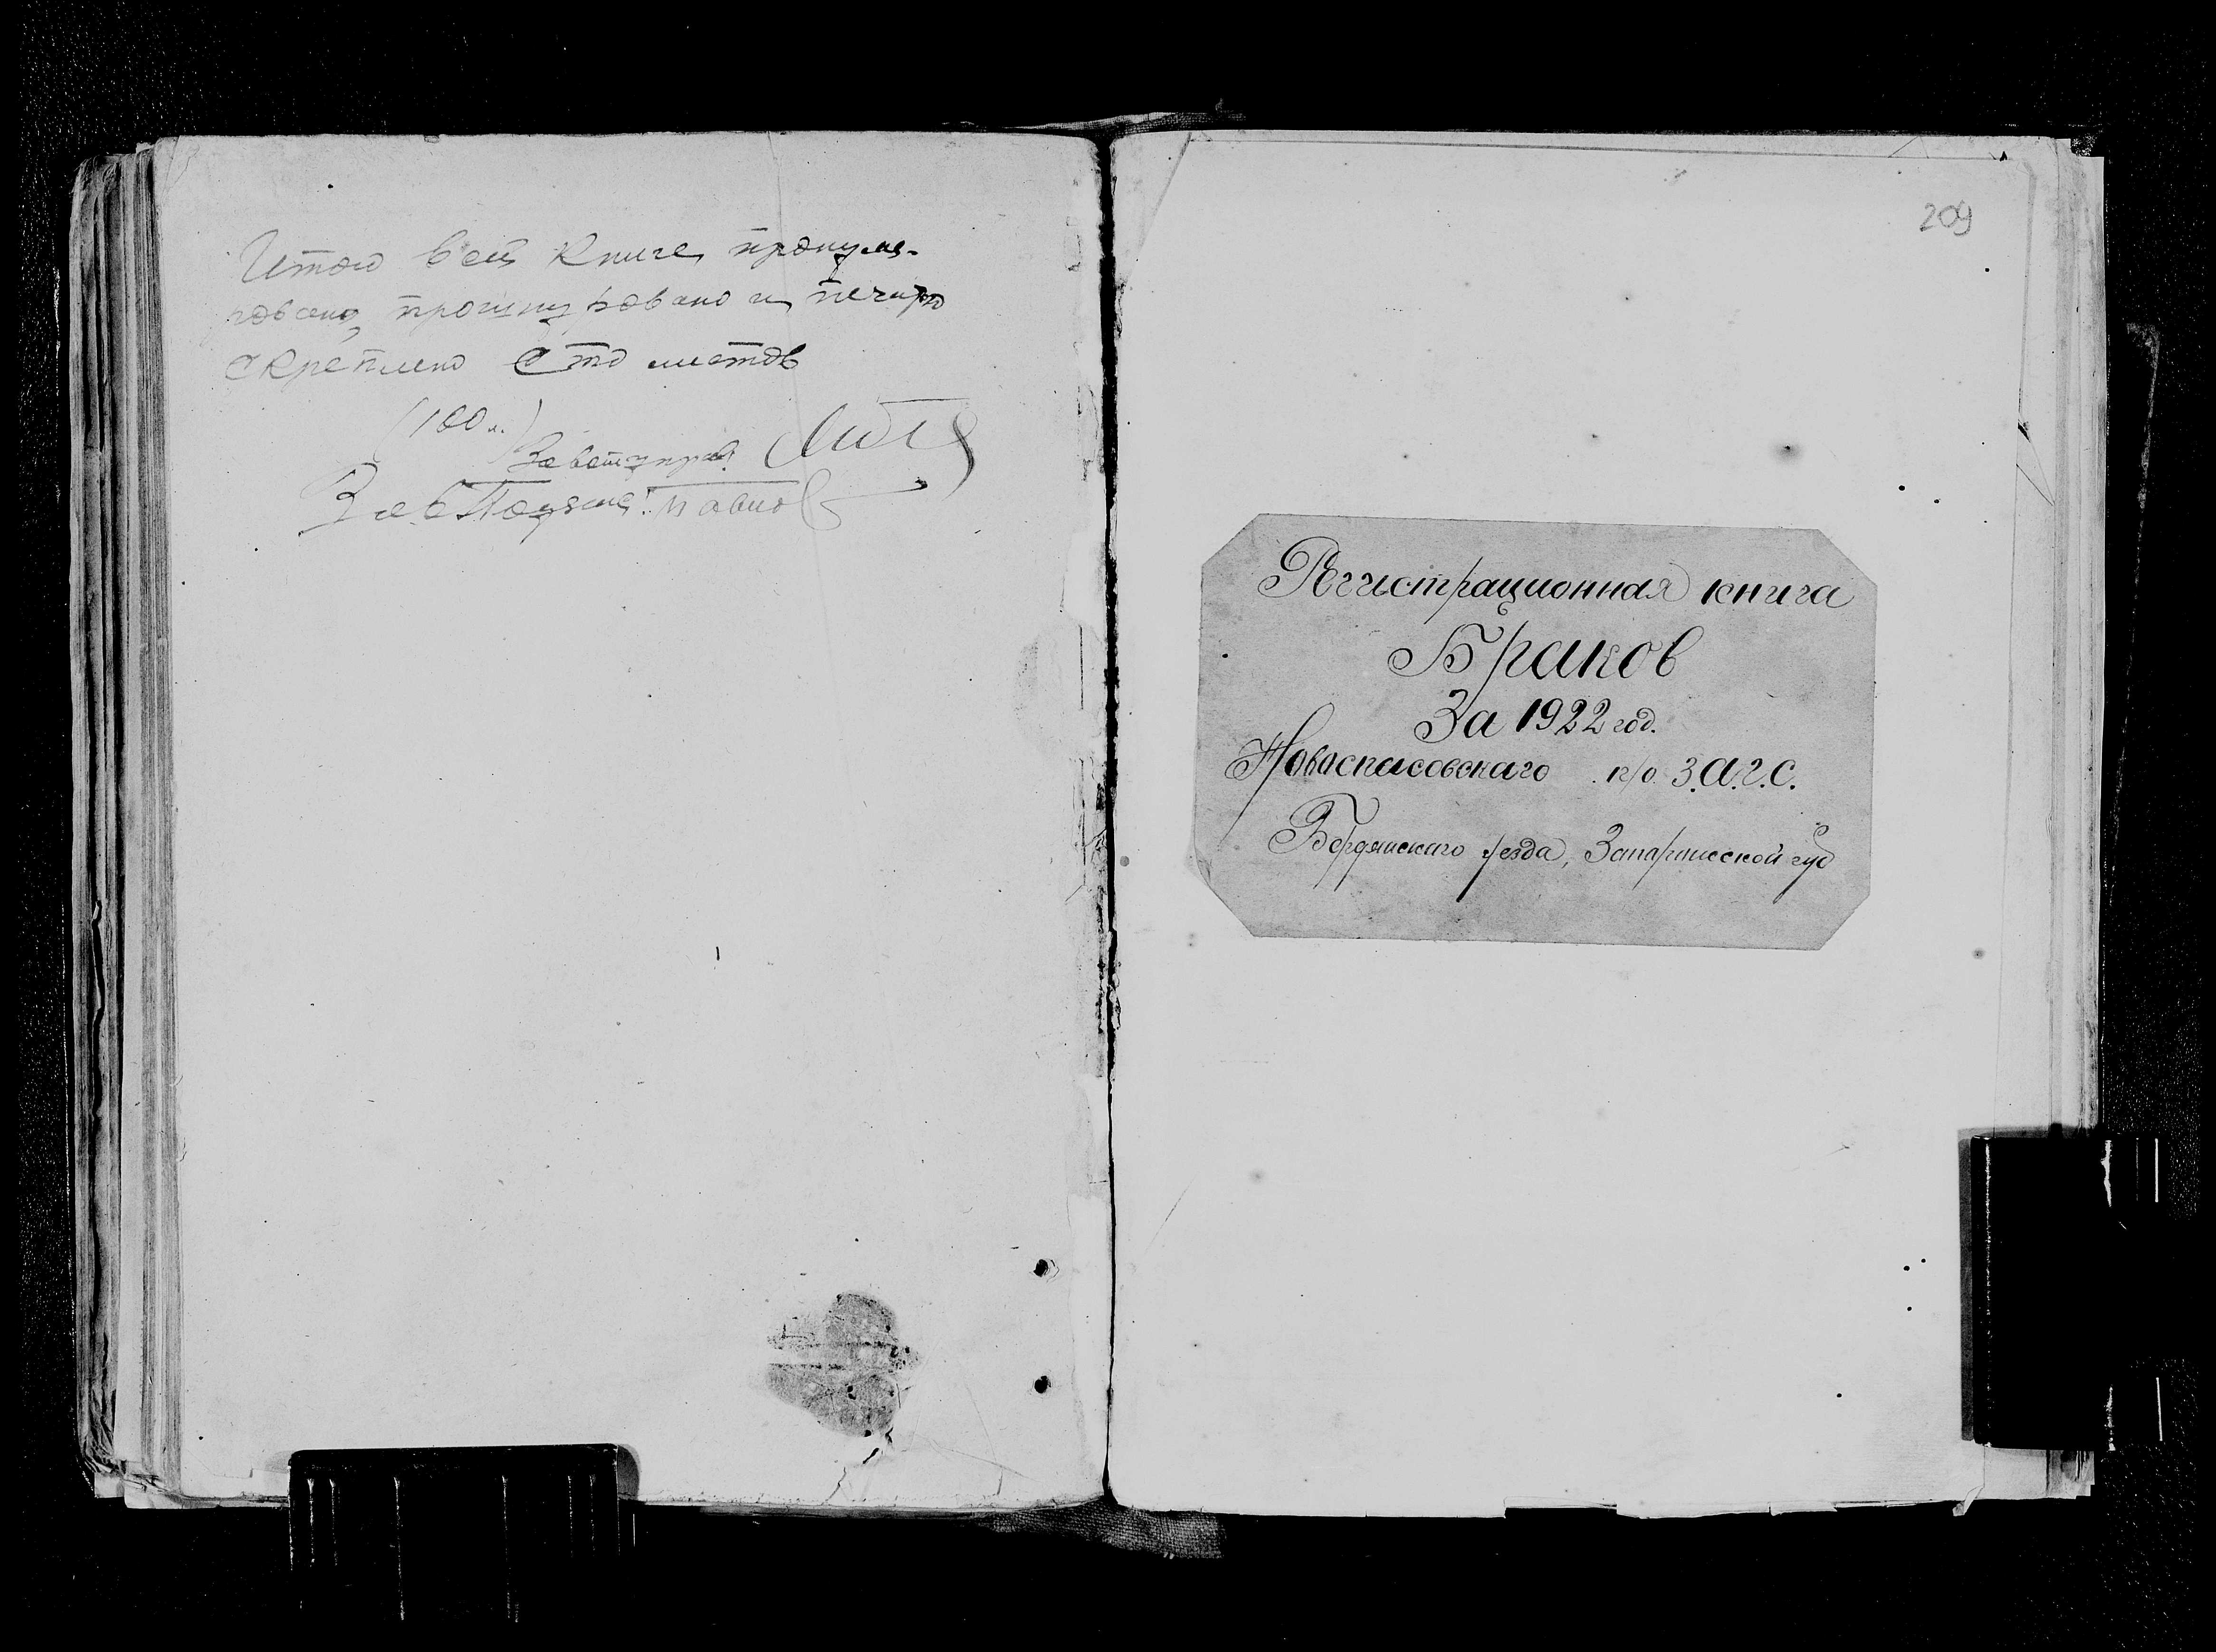 Итого в сей книге пронуме-
ровано, прошнуровано и печатью
скреплено сто листов
(100 л.)
209
Регистрационная книга
Браков
За 1922 год.
Новоспасовскаго п/о З.А.Г.С.
Бердянскаго уезда, Запорожской губ